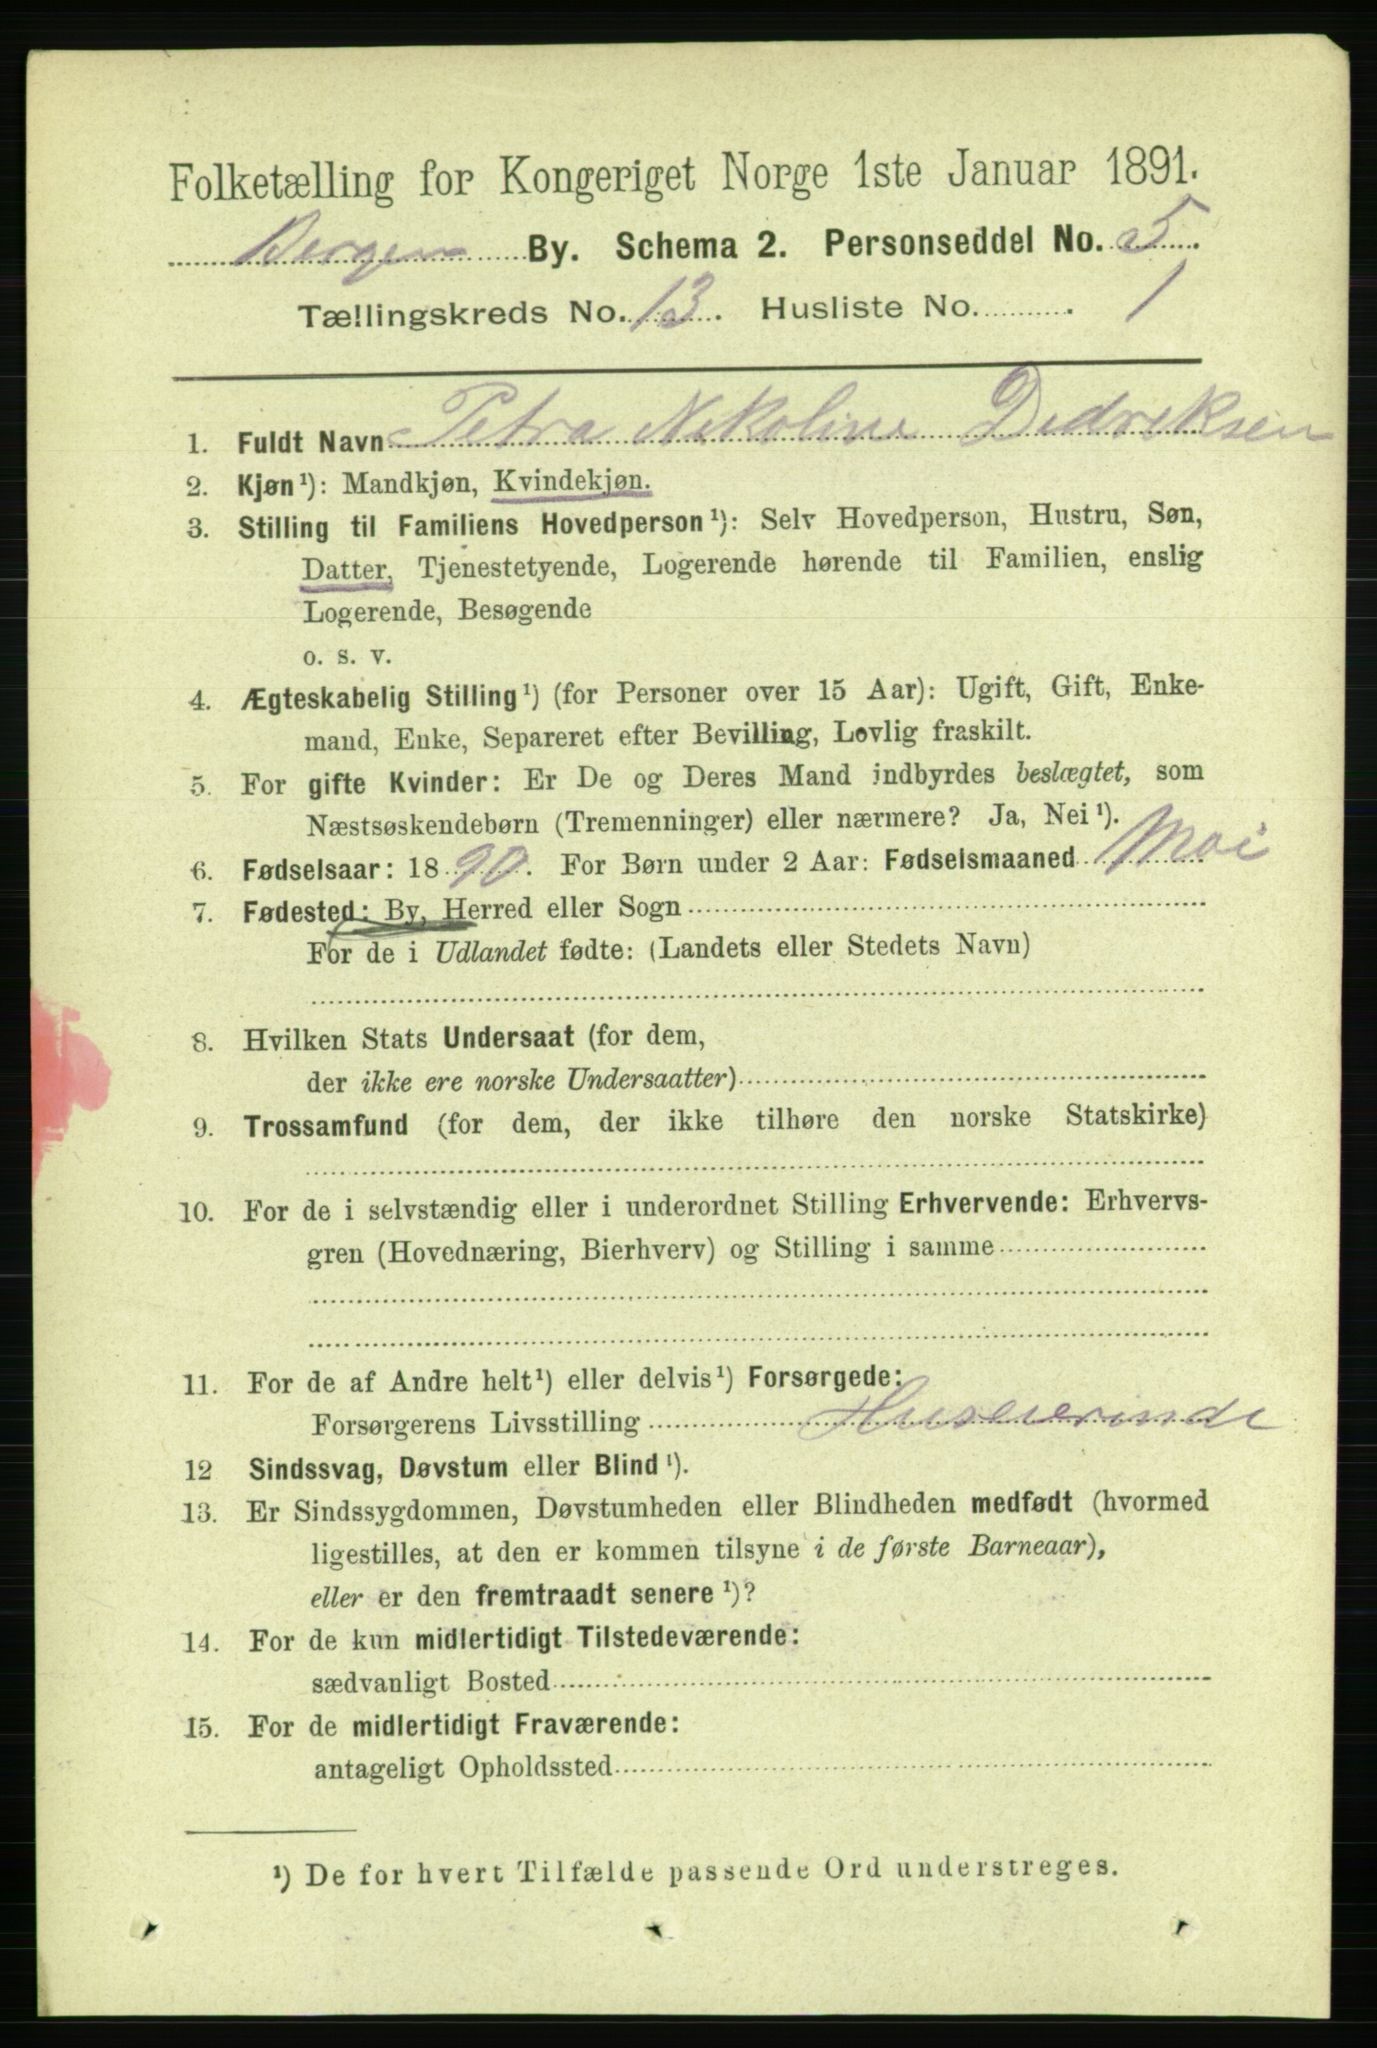 Folketælling for Kongeriget Norge 1ste Januar 1891.
Bergen By. Schema 2. Personseddel No. 5.
Tællingskreds No. 13. Husliste No. 1
1. Fuldt Navn Petra Nikoline Didriksen
2. Kjøn¹): Mandkjøn, Kvindekjøn.
3. Stilling til Familiens Hovedperson¹): Selv Hovedperson, Hustru, Søn,
Datter, Tjenestetyende, Logerende hørende til Familien, enslig
Logerende, Besøgende
o. s. v.
4. Ægteskabelig Stilling¹) (for Personer over 15 Aar): Ugift, Gift, Enke-
mand, Enke, Separeret efter Bevilling, Lovlig fraskilt.
5. For gifte Kvinder: Er De og Deres Mand indbyrdes beslægtet, som
Næstsøskendebørn (Tremenninger) eller nærmere? Ja, Nei¹).
6. Fødselsaar: 1890. For Børn under 2 Aar: Fødselsmaaned Mai
7. Fødested: By, Herred eller Sogn
For de i Udlandet fødte: (Landets eller Stedets Navn)
8. Hvilken Stats Undersaat (for dem,
der ikke ere norske Undersaatter)
9. Trossamfund (for dem, der ikke tilhøre den norske Statskirke)
10. For de i selvstændig eller i underordnet Stilling Erhvervende: Erhvervs-
gren (Hovednæring, Bierhverv) og Stilling i samme
11. For de af Andre helt¹) eller delvis¹) Forsørgede:
Forsørgerens Livsstilling Huseierinde
12 Sindssvag, Døvstum eller Blind¹).
13. Er Sindssygdommen, Døvstumheden eller Blindheden medfødt (hvormed
ligestilles, at den er kommen tilsyne i de første Barneaar),
eller er den fremtraadt senere¹)?
14. For de kun midlertidigt Tilstedeværende:
sædvanligt Bosted
15. For de midlertidigt Fraværende:
antageligt Opholdssted
¹) De for hvert Tilfælde passende Ord understreges.